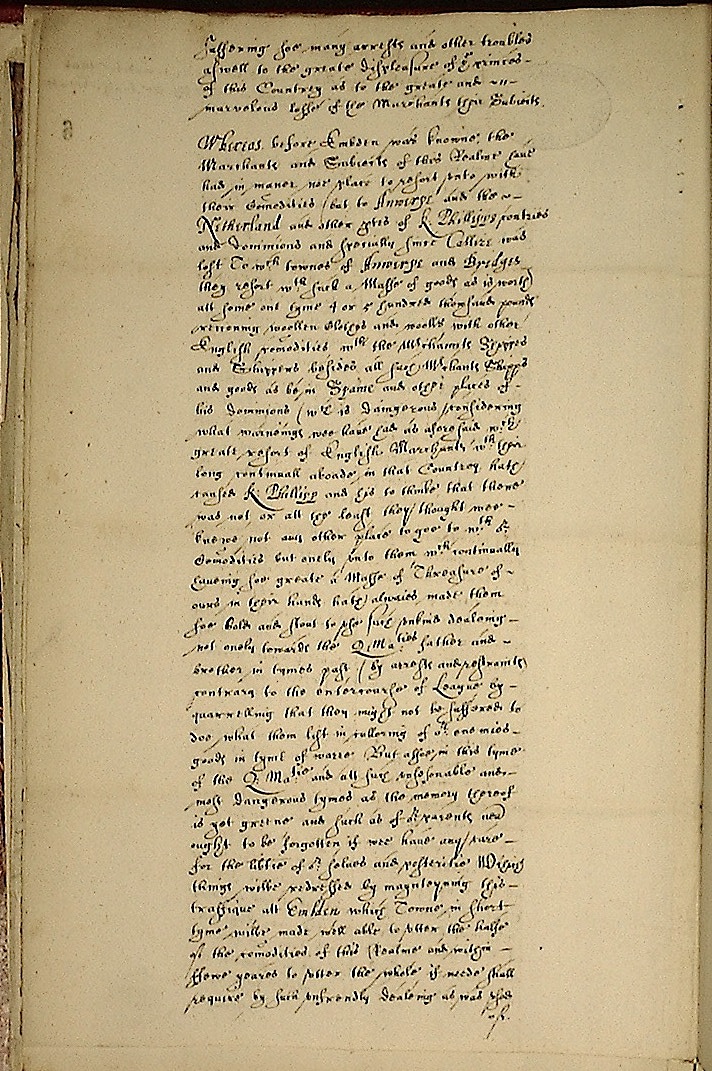 suffering soe many arrests and other troubles
aswell to the great displeasure of ye princes
of this Countrey as to the greate and
marvelous losse of the Marchants their Subiects.
Whereas before Embden was knowne, the
Marchants and Subiects of this Realme have
had in maner noe place to resort unto with
their Comodities but to Anwerpe and the
Netherland and other ptes of K. Phillipps contries
and dominions and specially since Callize was
lost To wch townes of Anwerpe and Bridges
they resort wth such a Masse of goods as is worth
att some one tyme 4 or 5 hundred thousand pounds
reconing woollen Clothes and woolls with other
English comodities wth the Merchaunts Shippes
and Shippers besides all such Mrchants Shipps
and goods as be in Spaine and other places of
his dominions (wch is daingerous considering
what warnings wee have had as aforesaid wch
greate resort of English Marchants wth their
long continuall aboade in that Countrey hath
caused K. Phillipp and his to thinke that there
was not or att the least they thought wee
knewe not any other place to goe to wth or
Comodities but onely unto them wch continually
haveing soe greate a Masse of Threasure of
ours in their hands hath alwaies made them
soe bold and stout to use such unkind dealeing
not onely towards the Q. Maties father and
brother in tymes past (by arrests and restraints)
contrary to the entercourse of League by
quarrelling that they might not be suffered to
doe what them list in culloring of or enemies
goods in tyme of warre But alsoe in this tyme
of the Q. Matie and att such unseasonable and
most dangerous tymes as the memory thereof
is yet greene and such as of or parents ned
ought to be forgotten if wee have any care
for the libtie of or selves and posteritie Which
things wilbe redressed by maynteyning this
traffique att Embden which Towne in short
tyme wilbe made well able to utter the halfe
of the comodities of this Realme and within
fewe yeares to utter the whole if neede shall
require by such unfrendly dealeing as was used
of.